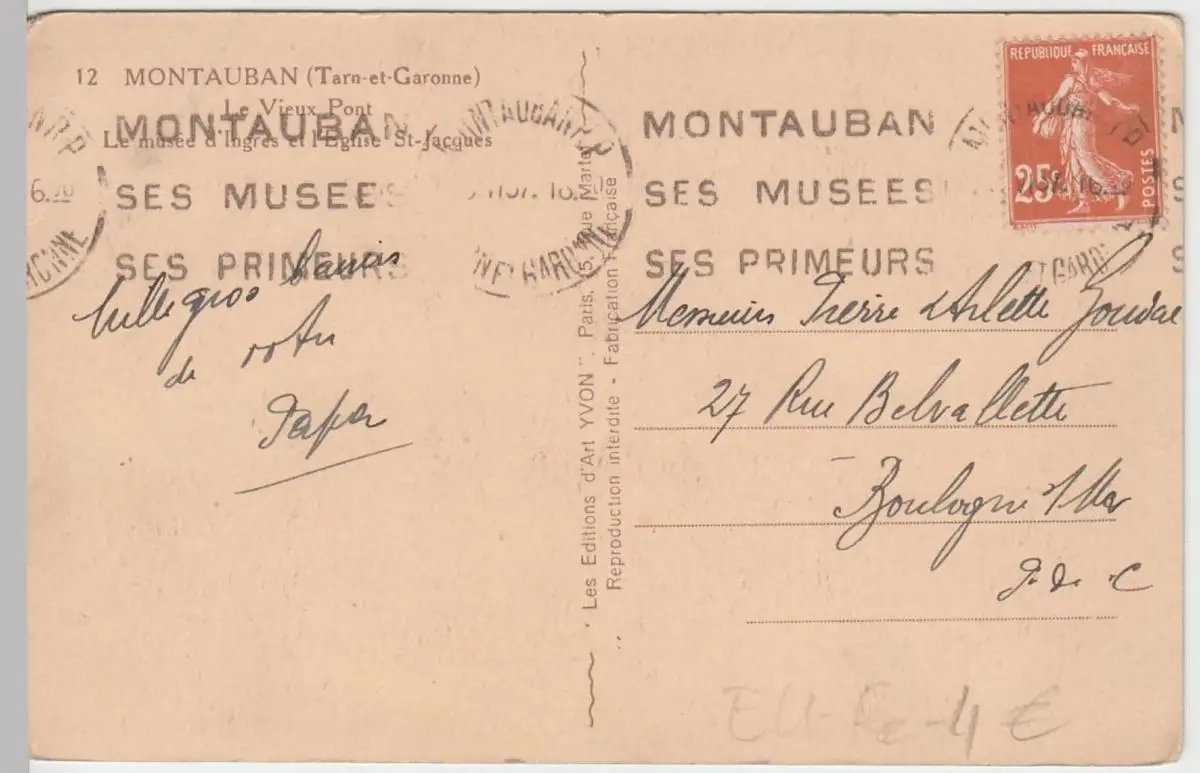 12 MONTAUBAN (Tarn-et-Garonne)
Le Vieux Pont
Le musée d'Ingres et l'Eglise St-Jacques
MONTAUBAN
SES MUSEES
SES PRIMEURS
Mille gros baisers
de votre
Papa
" Les Editions d'Art YVON ". Paris, 15, rue Martel
Reproduction interdite - Fabrication Française
MONTAUBAN
SES MUSEES
SES PRIMEURS
REPUBLIQUE FRANÇAISE
25c
POSTES
Messieurs Pierre & Arlette
27 Rue Belvallette
Boulogne s/ Mer
P. de C
4 €